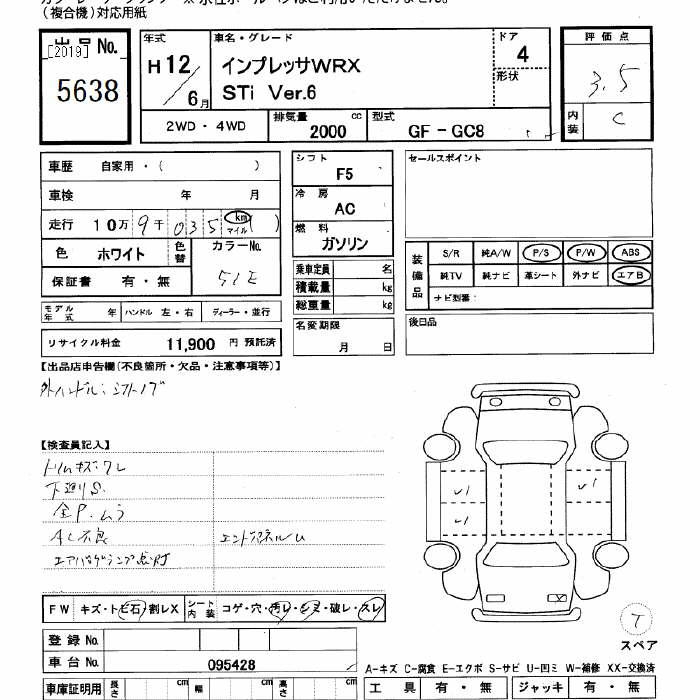 (複合機)対応用紙
出品 No.
[2019]
5638
年式
H 12 / 6 月
車名・グレード
インプレッサWRX
STi Ver.6
ドア
4
形状
評価点
3.5
内装
C
2WD・4WD
排気量 cc
2000
型式
GF-GC8
車歴 自家用・( )
車検 年 月
走行 10万 9千 0 3 5 km マイル ( )
色 ホワイト
色替
カラーNo.
51E
保証書 有・無
モデル年式 年
ハンドル 左・右
ディーラー・並行
リサイクル料金 11,900 円 預託済
シフト
F5
冷房
AC
燃料
ガソリン
乗車定員 名
積載量 kg
総重量 kg
名変期限
月 日
セールスポイント
装備品
S/R 純A/W P/S P/W ABS
純TV 純ナビ 革シート 外ナビ エアB
ナビ型番:
後日品
【出品店申告欄(不良箇所・欠品・注意事項等)】
外ハンドル、シフトノブ
【検査員記入】
トリムキズ・ワレ
下廻りS.
全P.ムラ
AC不良
エンドパネルU
エアバッグランプ点灯
FW キズ・トビ石 割レX
シート内装 コゲ・穴・汚レ・シミ・破レ・スレ
登録 No.
車台 No. 095428
車庫証明用 長さ cm 幅 cm 高さ cm
T
スペア
A-キズ C-腐食 E-エクボ S-サビ U-凹ミ W-補修 XX-交換済
工具 有・無 ジャッキ 有・無